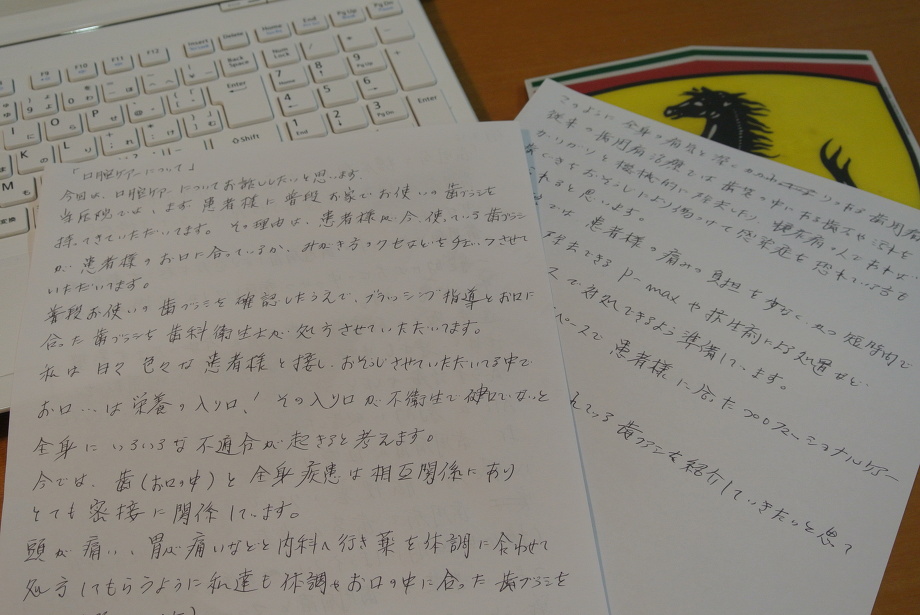 「口腔ケアーについて」
今回は、口腔ケアーについてお話ししたいと思います。
当医院では、まず患者様に普段お家でお使いの歯ブラシを
持ってきていただいてます。その理由は、患者様が今、使っている歯ブラシ
が患者様のお口に合っているか、みがき方のクセなどをチェックさせて
いただいてます。
普段お使いの歯ブラシを確認したうえで、ブラッシング指導とお口に
合った歯ブラシを歯科衛生士が処方させていただいてます。
私は日々色々な患者様と接し、おそうじさせていただいてる中で
お口…は栄養の入り口!その入り口が不衛生で健口でないと
全身にいろいろな不適合が起きると考えます。
今では、歯(お口の中)と全身疾患は相互関係にあり
とても密接に関係しています。
頭が痛い、胃が痛いなどと内科へ行き薬を体調に合わせて
処方してもらうように私達も体調やお口の中に合った歯ブラシを
このように全身の病気と深く
従来の歯周病治療では歯茎の中にある歯石や汚れを
カリカリと機械的に除去したり、糖尿病の人であれば
おそうじにより傷つけて感染症を恐れている方も
れると思います。
では、患者様の痛みの負担を少なく、かつ短時間で
除去できるP-maxや抗生剤による処置など
スで対処できるよう準備しています。
ペースで患者様に合ったプロフェッショナルケアー
歯ブラシを紹介していきたいと思っ
F9
F10
F11
F12
Insert
Delete
Home
End
Pg Up
Pg Dn
Back Space
Num Lock
Enter
Shift
7
8
9
4
5
6
1
2
3
Enter
I
O
P
K
L
M
変換